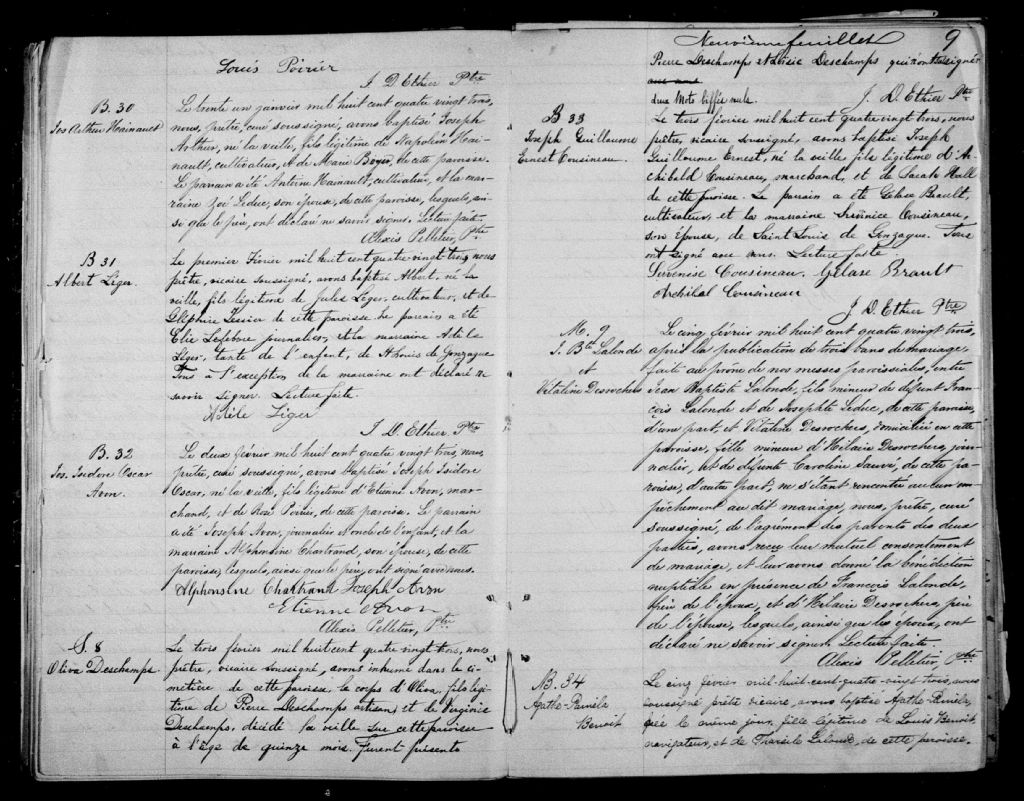 Louis Poirier
J D Ethier Ptre
B. 30
Jos Arthur Hainault
Le trente un janvier mil huit cent quatre vingt trois,
nous, prêtre, curé soussigné, avons baptisé Joseph
Arthur, né la veille, fils légitime de Napoléon Hai-
nault, cultivateur, & de Marie Boyer, de cette paroisse.
Le parrain a été Antoine Hainault, cultivateur, et la mar-
raine Zoé Leduc, son épouse, de cette paroisse, lesquels, ain-
si que le père, ont déclaré ne savoir signer. Lecture faite.
Alexis Pelletier, Ptre
B 31
Albert Léger.
Le premier Février mil huit cent quatre vingt trois nous
prêtre, vicaire soussigné, avons baptisé Albert, né la
veille, fils légitime de Jules Léger, cultivateur, et de
Delphine Tessier de cette paroisse. Le parrain a été
Elie Lefebvre journalier, et la marraine Adèle
Léger, tante de l'enfant, de St Louis de Gonzague
Tous à l'exception de la marraine ont déclaré ne
savoir signer. Lecture faite.
Adèle Léger
J. D. Ethier Ptre
B. 32
Jos. Isidore Oscar
Avon.
Le deux février mil huit cent quatre vingt trois, nous,
prêtre, curé soussigné, avons baptisé Joseph Isidore
Oscar, né la veille, fils légitime d'Etienne Avon, mar-
chand, et de Rose Poirier, de cette paroisse. Le parrain
a été Joseph Avon, journalier & oncle de l'enfant, et la
marraine Alphonsine Chartrand, son épouse, de cette
paroisse, lesquels, ainsi que le père, ont signé avec nous.
Alphonsine Chartrand Joseph Avon
Etienne Avon
Alexis Pelletier, Ptre
S. 8
Oliva Deschamps.
Le trois février mil huit cent quatre vingt trois, nous
prêtre, vicaire soussigné, avons inhumé dans le ci-
metière de cette paroisse, le corps d'Oliva, fils légi-
time de Pierre Deschamps artisan, et de
Deschamps, décédé la veille sur cette paroisse
à l'âge de quinze mois. Furent présents
Neuvième feuillet 9
Pierre Deschamps et Deschamps qui ont signé
avec nous
deux mots biffés nuls. J. D. Ethier Ptre
B 33
Joseph Guillaume
Ernest Cousineau.
Le trois février mil huit cent quatre vingt trois, nous
prêtre, vicaire soussigné, avons baptisé Joseph
Guillaume Ernest, né la veille, fils légitime d'Ar-
chibald Cousineau, marchand, et de Sarah Hall
de cette paroisse. Le parrain a été Gélase Brault,
cultivateur, et la marraine Cousineau,
son épouse, de Saint Louis de Gonzague. Tous
ont signé avec nous. Lecture faite.
Cousineau. Gélase Brault
Archibal Cousineau
J. D. Ethier Ptre
M. 9
J. Bte Lalonde
et
Vitaline Desrochers
Le cinq février mil huit cent quatre vingt trois,
après la publication de trois bans de mariage,
faite au prône de nos messes paroissiales, entre
Jean Baptiste Lalonde, fils mineur de défunt Fran-
çois Lalonde et de Josephte Leduc, de cette paroisse,
d'une part, et Vitaline Desrochers, domiciliée en cette
paroisse, fille mineure d'Hilaire Desrochers, jour-
nalier, et de défunte Caroline Sauvé, de cette pa-
roisse, d'autre part; ne s'étant rencontré aucun em-
pêchement au dit mariage, nous, prêtre, curé
soussigné, de l'agrément des parents des deux
parties, avons reçu leur mutuel consentement
de mariage, et leur avons donné la bénédiction
nuptiale en présence de François Lalonde,
frère de l'époux, et d'Hilaire Desrochers, père
de l'épouse, lesquels, ainsi que les époux, ont
déclaré ne savoir signer. Lecture faite.
Alexis Pelletier, Ptre
B. 34
Agathe-Paméla
Benoit
Le cinq février mil-huit-cent-quatre-vingt-trois, nous
soussigné prêtre vicaire, avons baptisé Agathe Paméla,
née le même jour, fille légitime de Louis Benoit
navigateur, et de Lalonde, de cette paroisse.